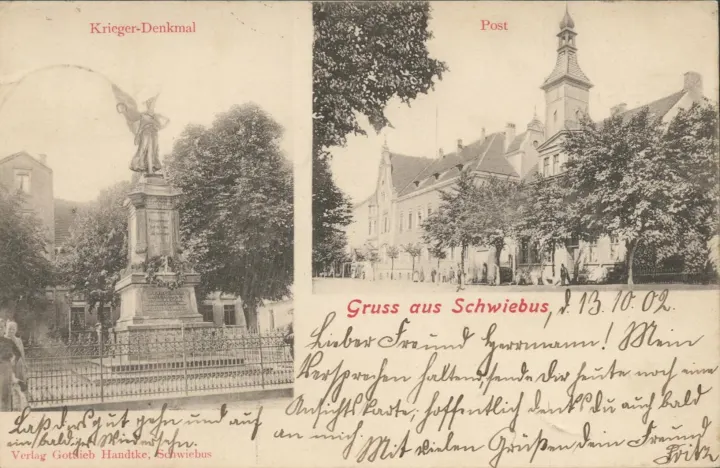 Krieger-Denkmal
Post
Gruss aus Schwiebus, d. 13.10.02.
Lieber Freund Herrmann! Mein
Versprechen haltend, sende Dir heute noch eine
Ansichtskarte; hoffentlich denkst Du auch bald
an mich. Mit vielen Grüßen dein Freund
Fritz
Laß Dir's gut gehn und auf
ein baldiges Wiedersehn.
Verlag Gottlieb Handtke, Schwiebus